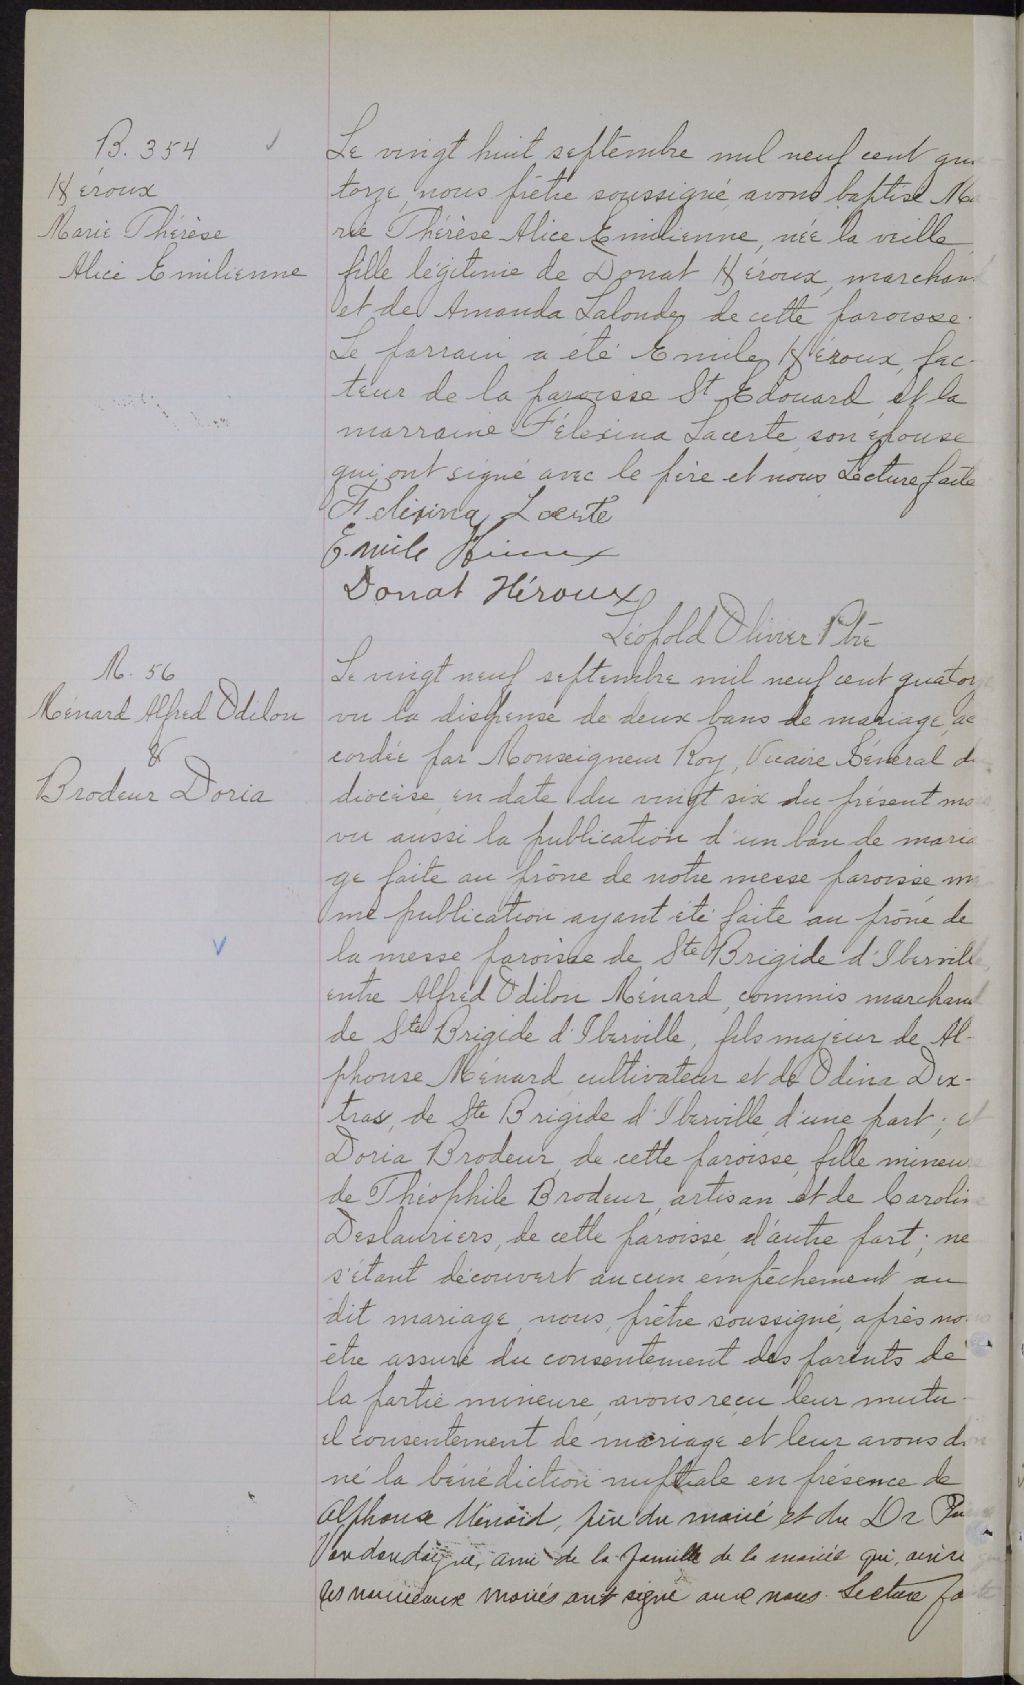 B. 354
Héroux
Marie Thérèse
Alice Emilienne
Le vingt huit septembre mil neuf cent qua
torze, nous prêtre soussigné, avons baptisé Ma
rie Thérèse Alice Emilienne, née la veille,
fille légitime de Donat Héroux, marchand
et de Amanda Lalonde, de cette paroisse.
Le parrain a été Emile Héroux, fac-
teur de la paroisse St Edouard et la
marraine Félexina Lacerte, son épouse
qui ont signé avec le père et nous. Lecture faite
Felixina Lacerte
Emile Héroux
Donat Héroux
Léopold Olivier Ptre
M. 56
Ménard Alfred Odilon
&
Brodeur Doria
Le vingt neuf septembre mil neuf cent quatorze
vu la dispense de deux bans de mariage, ac
cordée par Monseigneur Roy, Vicaire Général du
diocèse, en date du vingt six du présent mois,
vu aussi la publication d'un ban de maria
ge faite au prône de notre messe paroisse mê
me publication ayant été faite au prône de
la messe paroisse de Ste Brigide d'Iberville,
entre Alfred Odilon Ménard, commis marchand
de Ste Brigide d'Iberville, fils majeur de Al-
phonse Ménard, cultivateur et de Odina Dex-
tras, de Ste Brigide d'Iberville, d'une part; et
Doria Brodeur, de cette paroisse, fille mineure
de Théophile Brodeur, artisan et de Caroline
Deslauriers, de cette paroisse, d'autre part; ne
s'étant découvert aucun empêchement au
dit mariage, nous, prêtre soussigné, après nous
être assuré du consentement des parents de
la partie mineure, avons reçu leur mutu-
el consentement de mariage et leur avons don
né la bénédiction nuptiale en présence de
Alphonse Ménard, père du marié et du Dr
Vandandaigue, ami de la famille de la mariée qui, ainsi que
les nouveaux mariés ont signé avec nous. Lecture faite